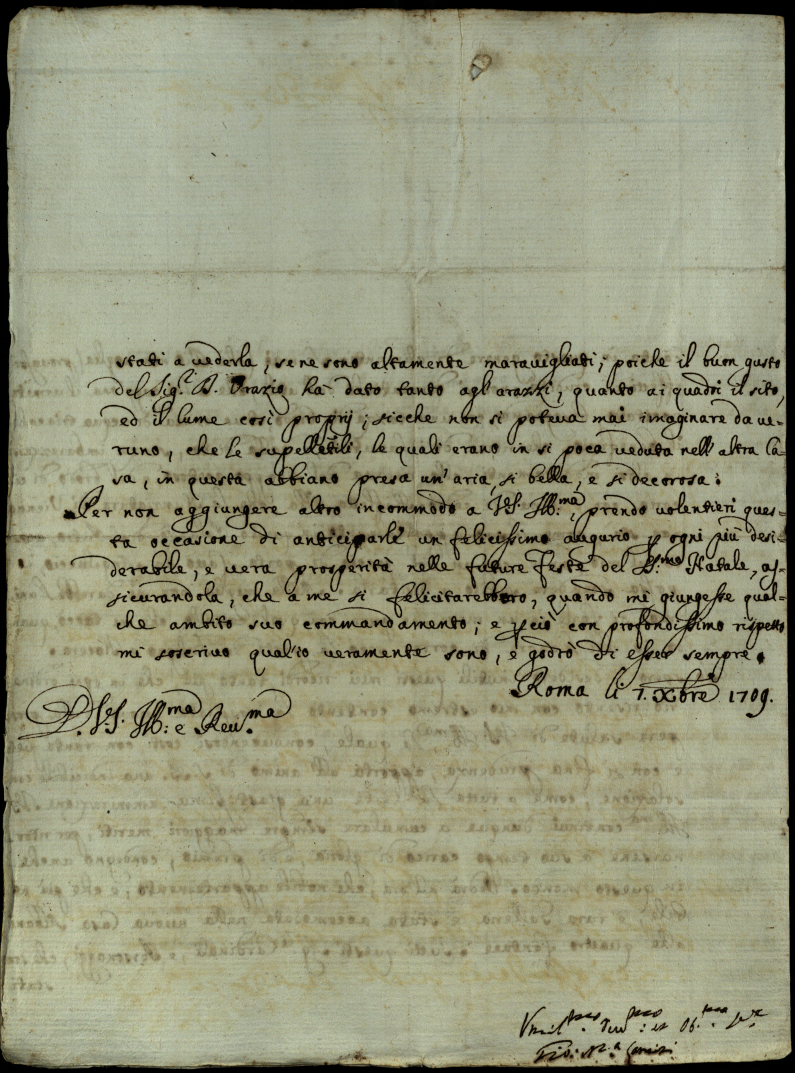 stati a vederla, se ne sono altamente maravigliati; poiche il buon gusto
del Sig.r D. Orazio ha dato tanto agl'arazzi, quanto ai quadri il sito,
ed il lume così proprij; sicche non si poteva mai imaginare da ve-
runo, che le supelletili, le quali erano in si poca veduta nell'altra Ca-
sa, in questa abbiano presa un'aria, si bella, e si decorosa.
Per non aggiungere altro incommodo a V.S. Ill:ma, prendo volentieri ques-
ta occasione di anticiparle un felicissimo augurio p ogni più desi-
derabile, e vera prosperità nelle future Feste del S.mo Natale, as-
sicurandola, che a me si felicitarebbero, quando mi giungesse qual-
che ambito suo commandamento; e p ciò con profondissimo rispetto
mi soscrivo qual'io veramente sono, e godrò di esser sempre.
Roma li 7. Xbre 1709.
D. V.S. Ill:ma e Rev.ma
Umil.mo Dev.mo et Ob.
Gio: